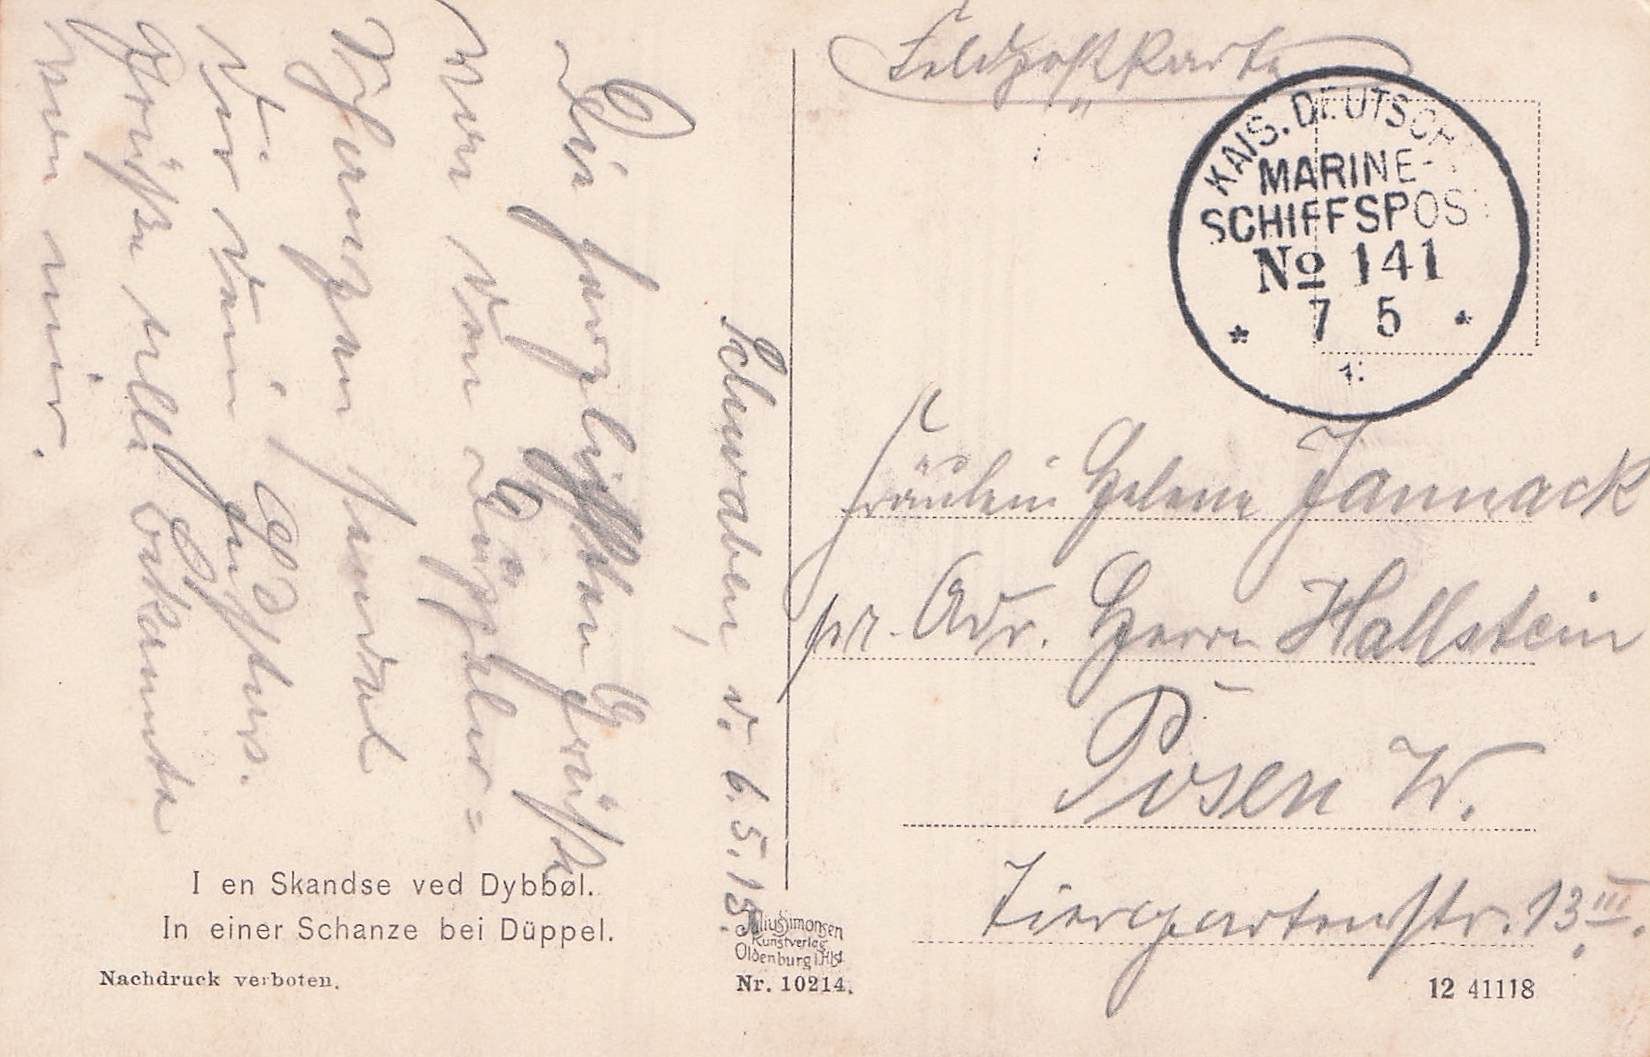 Feldpostkarte
KAIS. DEUTSCH
MARINE-
SCHIFFSPOST
No 141
7 5
Schwaben, d. 6.5.15.
Die herzlichsten Grüße
von den Düppeler-
Schanzen sendet
Dir dein Gustav.
Grüße alle Bekannte
von mir.
Fräulein Helene Jannack
pr. Adr. Herrn Hallstein
Posen W.
Tiergartenstr. 13 III.
I en Skandse ved Dybbøl.
In einer Schanze bei Düppel.
Nachdruck verboten.
Julius Simonsen
Kunstverlag
Oldenburg i. Hlst
Nr. 10214.
12 41118